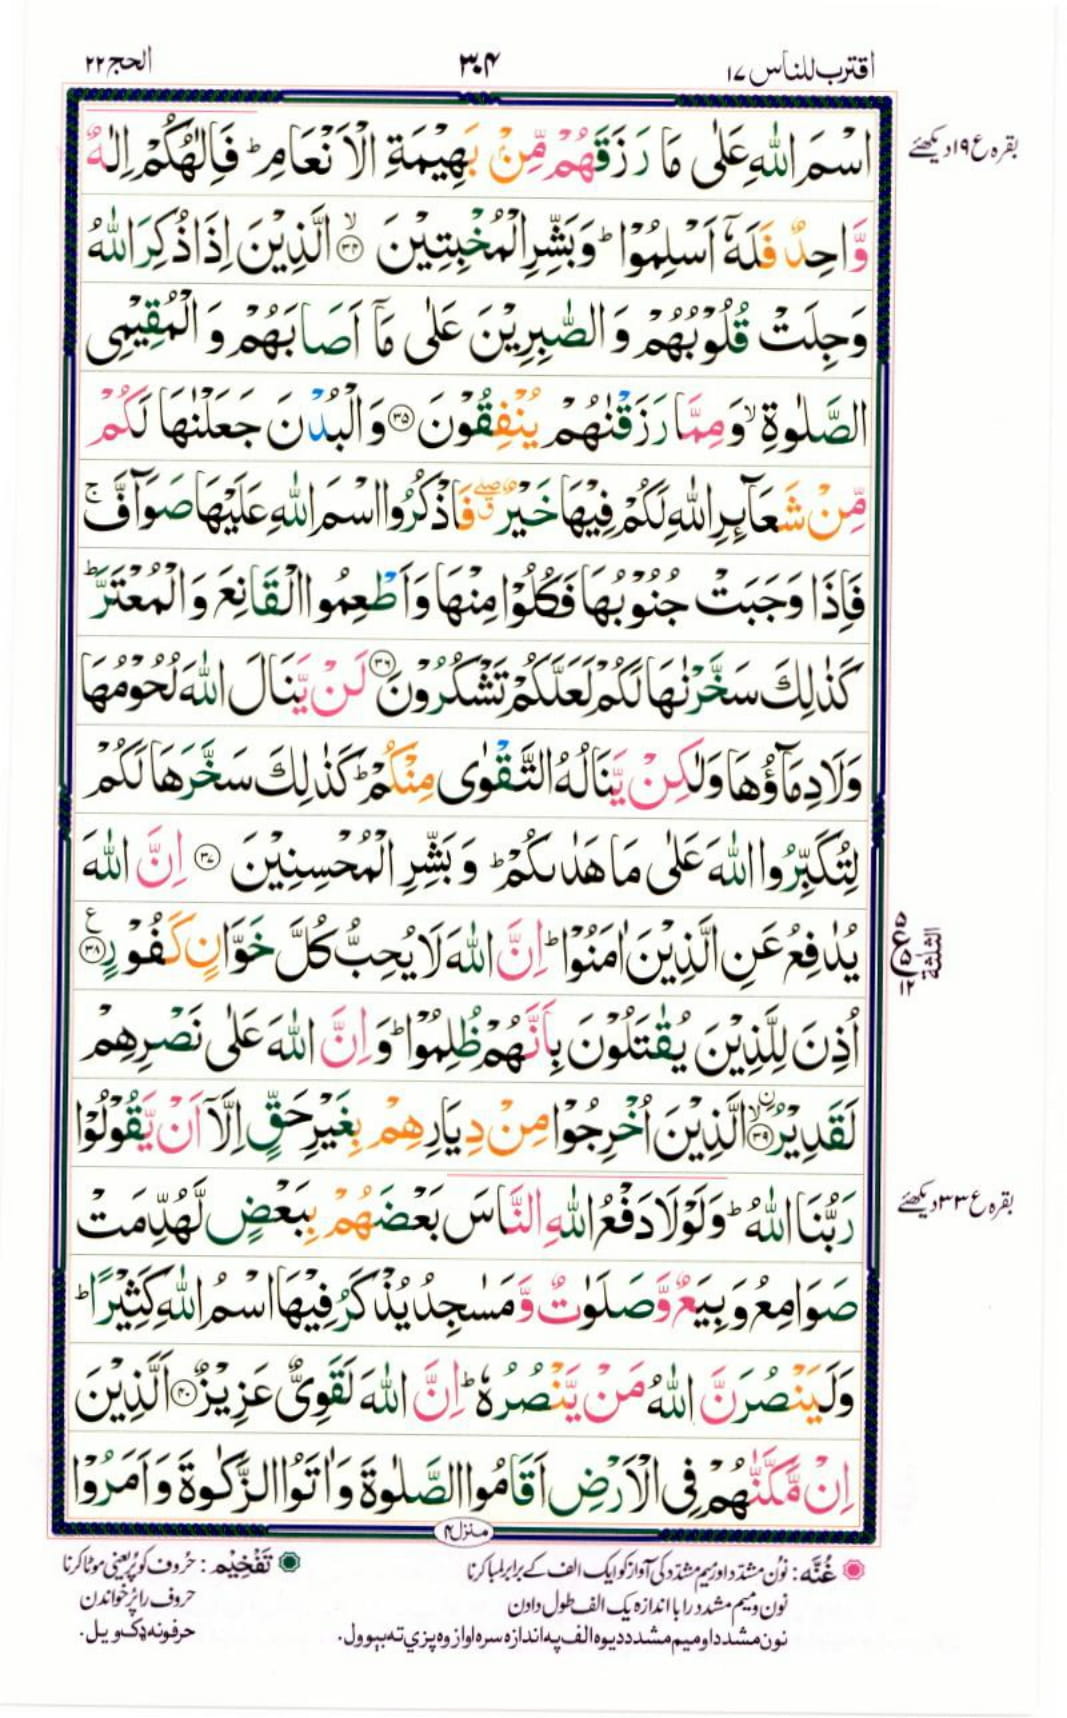 اقترب للناس ١٧
٣٠٤
الحج ٢٢
اسْمَ اللّٰهِ عَلٰى مَا رَزَقَهُمْ مِّنْۢ بَهِيْمَةِ الْاَنْعَامِ ؕ فَاِلٰهُكُمْ اِلٰهٌ
بقرہ ع ۱۹ دیکھئے
وَّاحِدٌ فَلَهٗۤ اَسْلِمُوْا ؕ وَبَشِّرِ الْمُخْبِتِيْنَ ﴿٣٤﴾ۙ الَّذِيْنَ اِذَا ذُكِرَ اللّٰهُ
وَجِلَتْ قُلُوْبُهُمْ وَالصّٰبِرِيْنَ عَلٰى مَاۤ اَصَابَهُمْ وَالْمُقِيْمِى
الصَّلٰوةِ ۙ وَمِمَّا رَزَقْنٰهُمْ يُنْفِقُوْنَ ﴿٣٥﴾ وَالْبُدْنَ جَعَلْنٰهَا لَكُمْ
مِّنْ شَعَآئِرِ اللّٰهِ لَكُمْ فِيْهَا خَيْرٌ ۖ ق فَاذْكُرُوا اسْمَ اللّٰهِ عَلَيْهَا صَوَآفَّ ۚ
فَاِذَا وَجَبَتْ جُنُوْبُهَا فَكُلُوْا مِنْهَا وَاَطْعِمُوا الْقَانِعَ وَالْمُعْتَرَّ ؕ
كَذٰلِكَ سَخَّرْنٰهَا لَكُمْ لَعَلَّكُمْ تَشْكُرُوْنَ ﴿٣٦﴾ لَنْ يَّنَالَ اللّٰهَ لُحُوْمُهَا
وَلَا دِمَآؤُهَا وَلٰكِنْ يَّنَالُهُ التَّقْوٰى مِنْكُمْ ؕ كَذٰلِكَ سَخَّرَهَا لَكُمْ
لِتُكَبِّرُوا اللّٰهَ عَلٰى مَا هَدٰىكُمْ ؕ وَبَشِّرِ الْمُحْسِنِيْنَ ﴿٣٧﴾ اِنَّ اللّٰهَ
يُدٰفِعُ عَنِ الَّذِيْنَ اٰمَنُوْا ؕ اِنَّ اللّٰهَ لَا يُحِبُّ كُلَّ خَوَّانٍ كَفُوْرٍ ﴿٣٨﴾ ع
٥ ع ٥ ١٢ الثلثة
اُذِنَ لِلَّذِيْنَ يُقٰتَلُوْنَ بِاَنَّهُمْ ظُلِمُوْا ؕ وَاِنَّ اللّٰهَ عَلٰى نَصْرِهِمْ
لَقَدِيْرُ ﴿٣٩﴾ۙ نِ الَّذِيْنَ اُخْرِجُوْا مِنْ دِيَارِهِمْ بِغَيْرِ حَقٍّ اِلَّاۤ اَنْ يَّقُوْلُوْا
رَبُّنَا اللّٰهُ ؕ وَلَوْلَا دَفْعُ اللّٰهِ النَّاسَ بَعْضَهُمْ بِبَعْضٍ لَّهُدِّمَتْ
بقرہ ع ۳۳ دیکھئے
صَوَامِعُ وَبِيَعٌ وَّصَلَوٰتٌ وَّمَسٰجِدُ يُذْكَرُ فِيْهَا اسْمُ اللّٰهِ كَثِيْرًا ؕ
وَلَيَنْصُرَنَّ اللّٰهُ مَنْ يَّنْصُرُهٗ ؕ اِنَّ اللّٰهَ لَقَوِىٌّ عَزِيْزٌ ﴿٤٠﴾ اَلَّذِيْنَ
اِنْ مَّكَّنّٰهُمْ فِى الْاَرْضِ اَقَامُوا الصَّلٰوةَ وَاٰتَوُا الزَّكٰوةَ وَاَمَرُوْا
منزل ٤
غُنَّه : نُون مشدّد اور میم مشدّد کی آواز کو ایک الف کے برابر لمبا کرنا
نون و میم مشدد را با اندازہ یک الف طول دادن
نون مشدد او میم مشدد دیوہ الف پہ اندازہ سرہ اواز وہ پزې تہ بېوول.
تَفْخِيْم : حُروف کو پُر یعنی موٹا کرنا
حروف را پُر خواندن
حرفونہ ډک ویل.